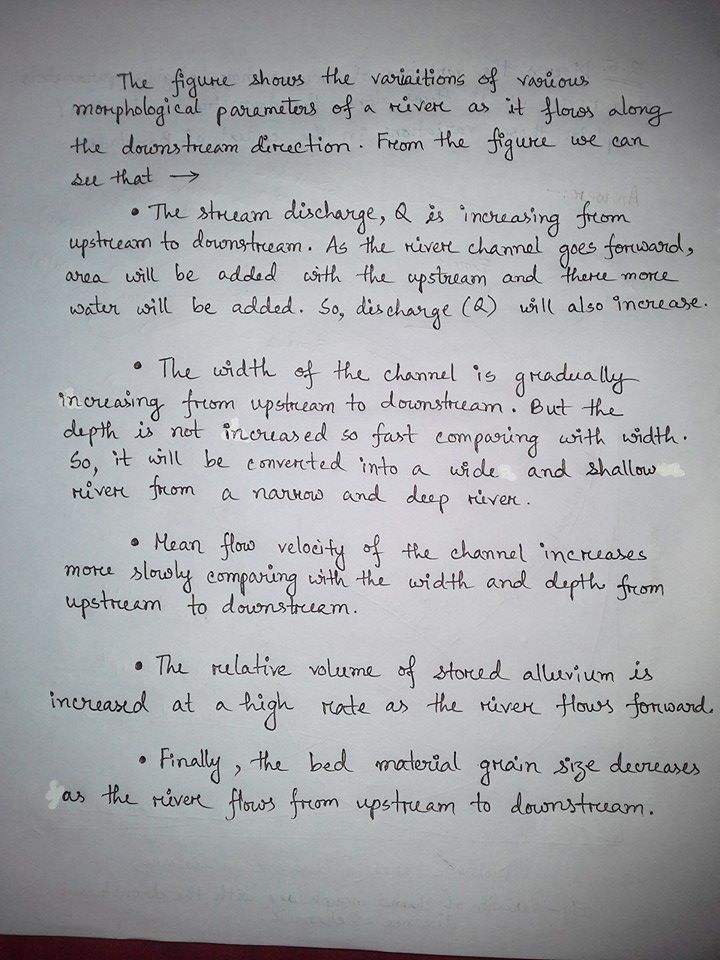 The figure shows the variaitions of various
morphological parameters of a river as it flows along
the downstream direction. From the figure we can
see that →
• The stream discharge, Q is increasing from
upstream to downstream. As the river channel goes forward,
area will be added with the upstream and there more
water will be added. So, discharge (Q) will also increase.
• The width of the channel is gradually
increasing from upstream to downstream. But the
depth is not increased so fast comparing with width.
So, it will be converted into a wide and shallow
river from a narrow and deep river.
• Mean flow velocity of the channel increases
more slowly comparing with the width and depth from
upstream to downstream.
• The relative volume of stored alluvium is
increased at a high rate as the river flows forward.
• Finally, the bed material grain size decreases
as the river flows from upstream to downstream.